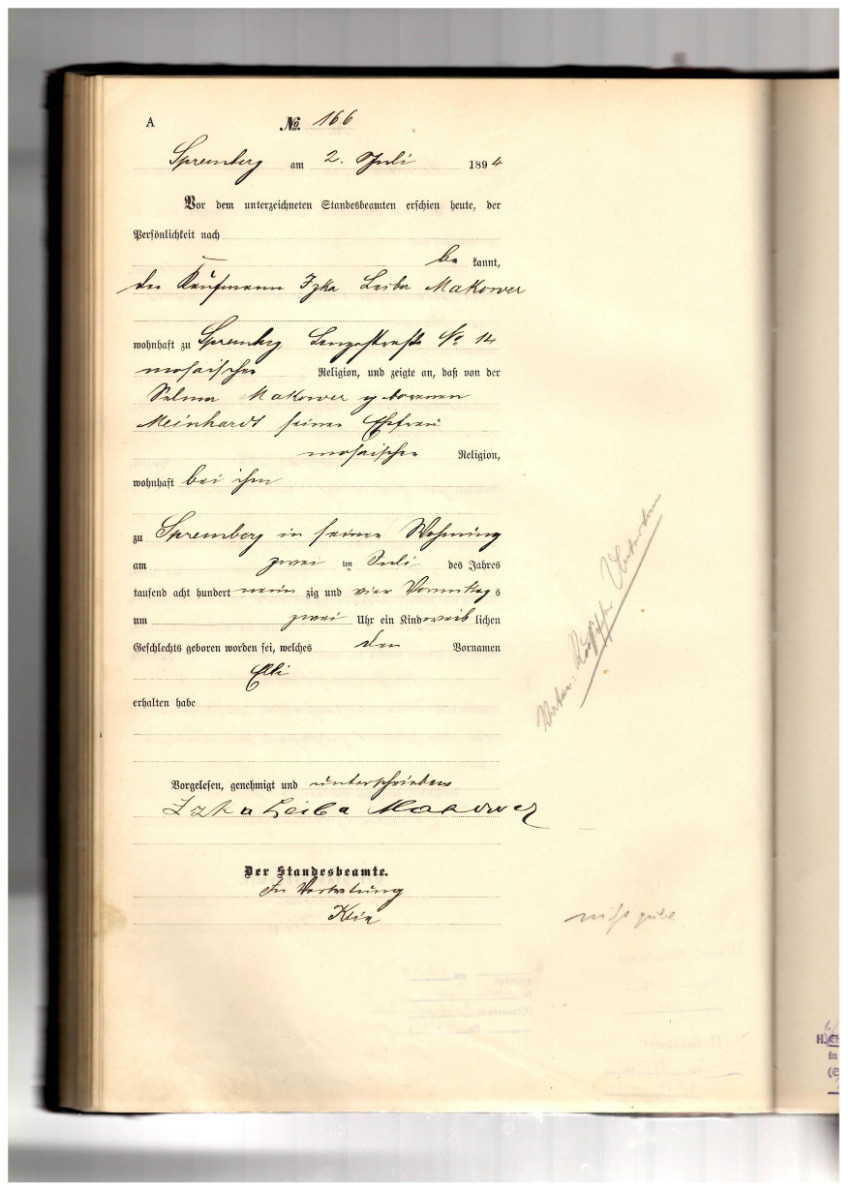 A
No. 166
Spremberg am 2. Juli 1894
Vor dem unterzeichneten Standesbeamten erschien heute, der
Persönlichkeit nach
be kannt,
der Kaufmann Izka Leiba Makower
wohnhaft zu Spremberg Langestraße No 14
mosaischer Religion, und zeigte an, daß von der
Selma Makower geborenen
Meinhardt seiner Ehefrau
mosaischer Religion,
wohnhaft bei ihm
zu Spremberg in seiner Wohnung
am zwei ten Juli des Jahres
tausend acht hundert neun zig und vier Vormittag s
um zwei Uhr ein Kind weib lichen
Geschlechts geboren worden sei, welches den Vornamen
Elli
erhalten habe
Vorgelesen, genehmigt und unterschrieben
Izka Leiba Makower
Der Standesbeamte.
In Vertretung
Klix
Vater:
H.
in